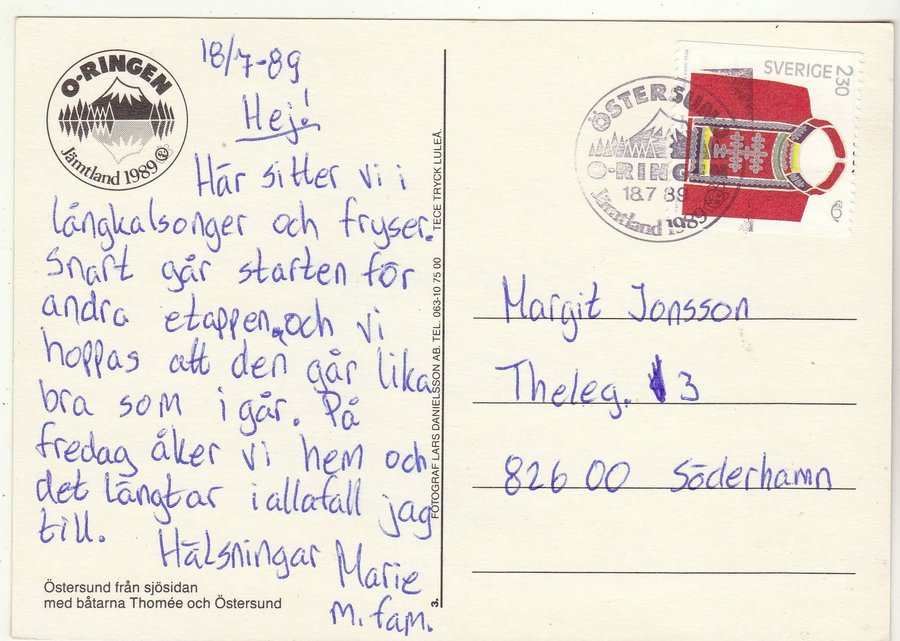 O-RINGEN
Jämtland 1989
18/7-89
Hej!
Här sitter vi i
långkalsonger och fryser.
Snart går starten för
andra etappen, och vi
hoppas att den går lika
bra som igår. På
fredag åker vi hem och
det längtar iallafall jag
till.
Hälsningar Marie
m. fam.
Östersund från sjösidan
med båtarna Thomée och Östersund
3.
FOTOGRAF LARS DANIELSSON AB. TEL. 063-10 75 00
TECE TRYCK LULEÅ.
SVERIGE 230
ÖSTERSUN
O-RING
18.7 89
Jämtland 1989
Margit Jonsson
Theleg. 3
826 00 Söderhamn